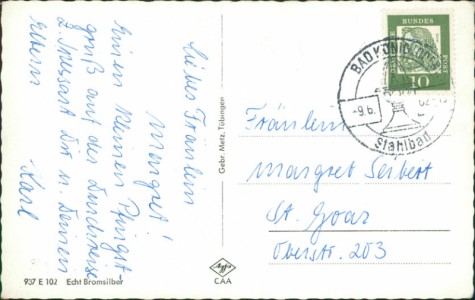 Liebes Fräulein
Margret!
Einen kleinen Pfingst-
gruß aus der Durchreise
z Spessart Dir u. Deinen
Eltern
Karl
937 E 102 Echt Bromsilber
Gebr. Metz, Tübingen
Agfa
CAA
DEUTSCHE
BUNDES
POST
10
BAD KÖNIG
-9.6.
62-18
Stahlbad
Fräulein
Margret Seibert
St. Goar
Oberstr. 203